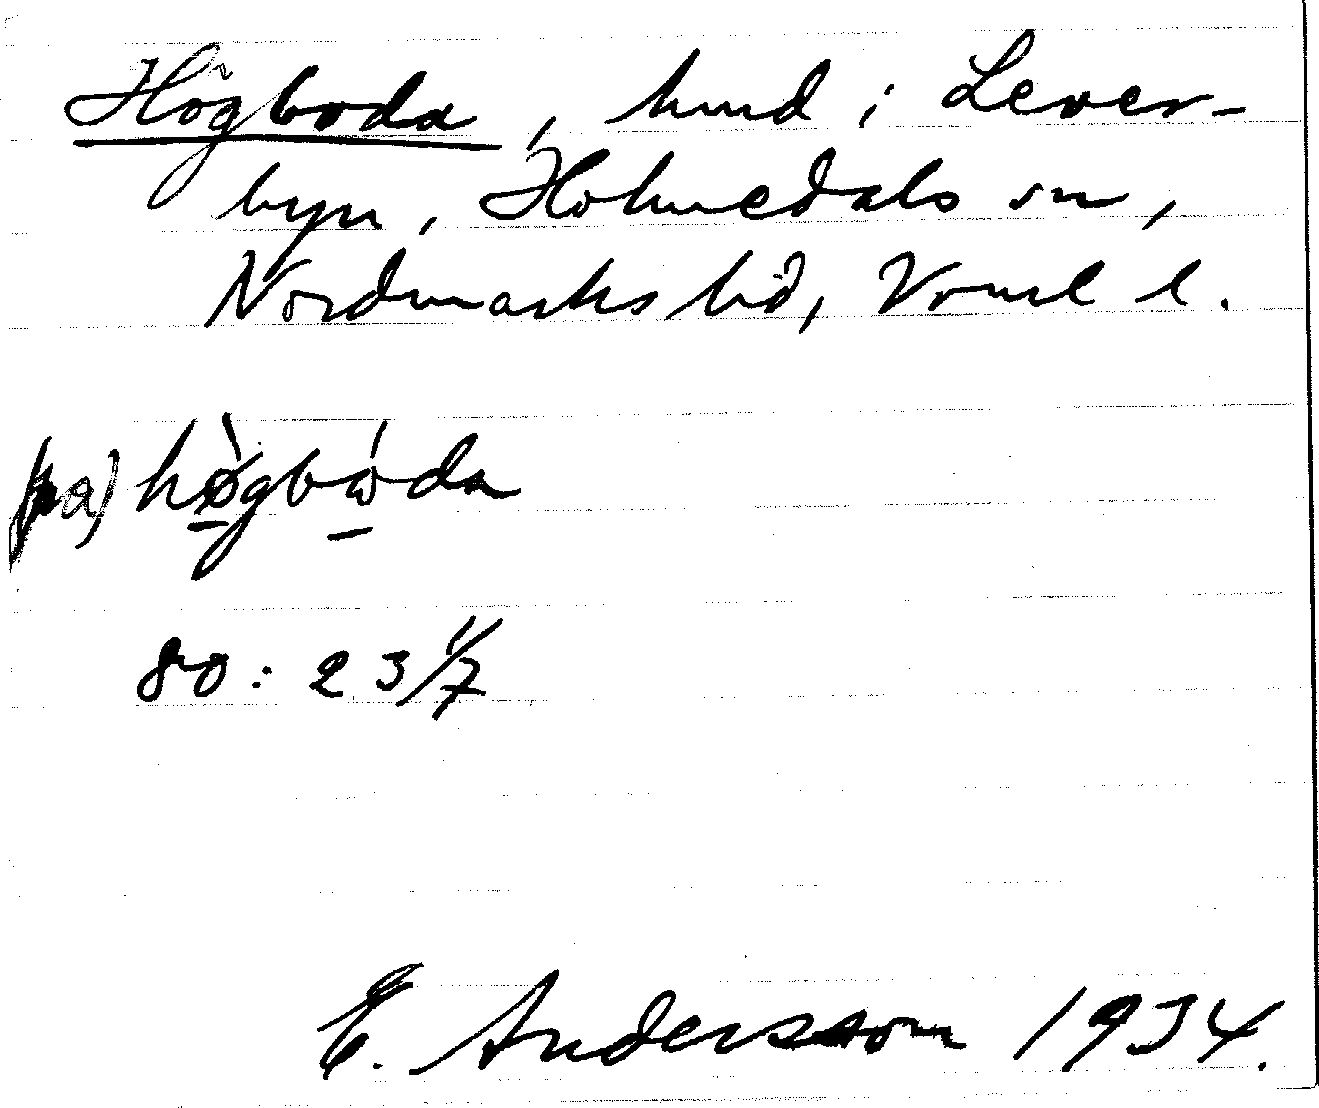 Högboda, hmd i Lever-
byn, Holmedals sn,
Nordmarks hd, Vrml l.
(på) hø̀gbɷ́da
80: 23 1/7
E. Andersson 1934.